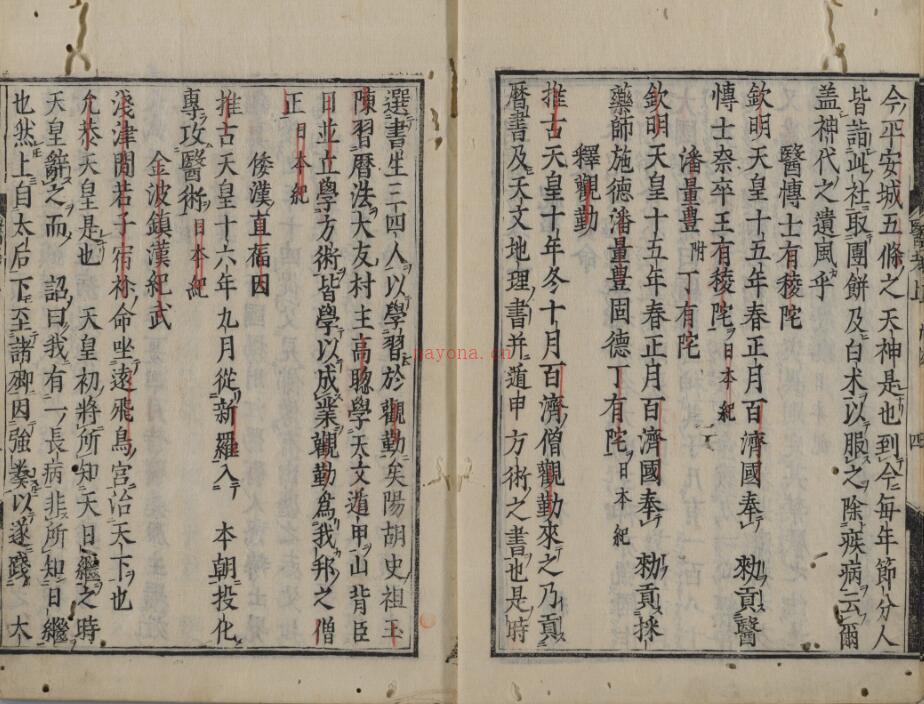 今平安城五條之天神是也到今每年節分人
皆詣此社取團餅及白朮以服之除疾病云爾
蓋神代之遺風乎
醫博士有稜陀
欽明天皇十五年春正月百濟國奉勅貢醫
博士奈卒王有稜陀日本紀
潘量豐附丁有陀
欽明天皇十五年春正月百濟國奉勅貢採
藥師施德潘量豐固德丁有陀日本紀
釋觀勤
推古天皇十年冬十月百濟僧觀勤來之乃貢
曆書及天文地理書并遁甲方術之書也是時
選書生三四人以學習於觀勤矣陽胡史祖玉
陳習曆法大友村主高聰學天文遁甲山背臣
日並立學方術皆學以成業觀勤爲我邦之僧
正日本紀
倭漢直福因
推古天皇十六年九月從新羅入本朝投化
專攻醫術日本紀
金波鎮漢紀武
淺津間若子宿祢命坐遠飛鳥宮治天下也
允恭天皇是也天皇初將所知天日繼之時
天皇辭之而詔曰我有一長病非所知日繼
也然上自太后下至諸卿因強奏以遂踐大
payona.cn